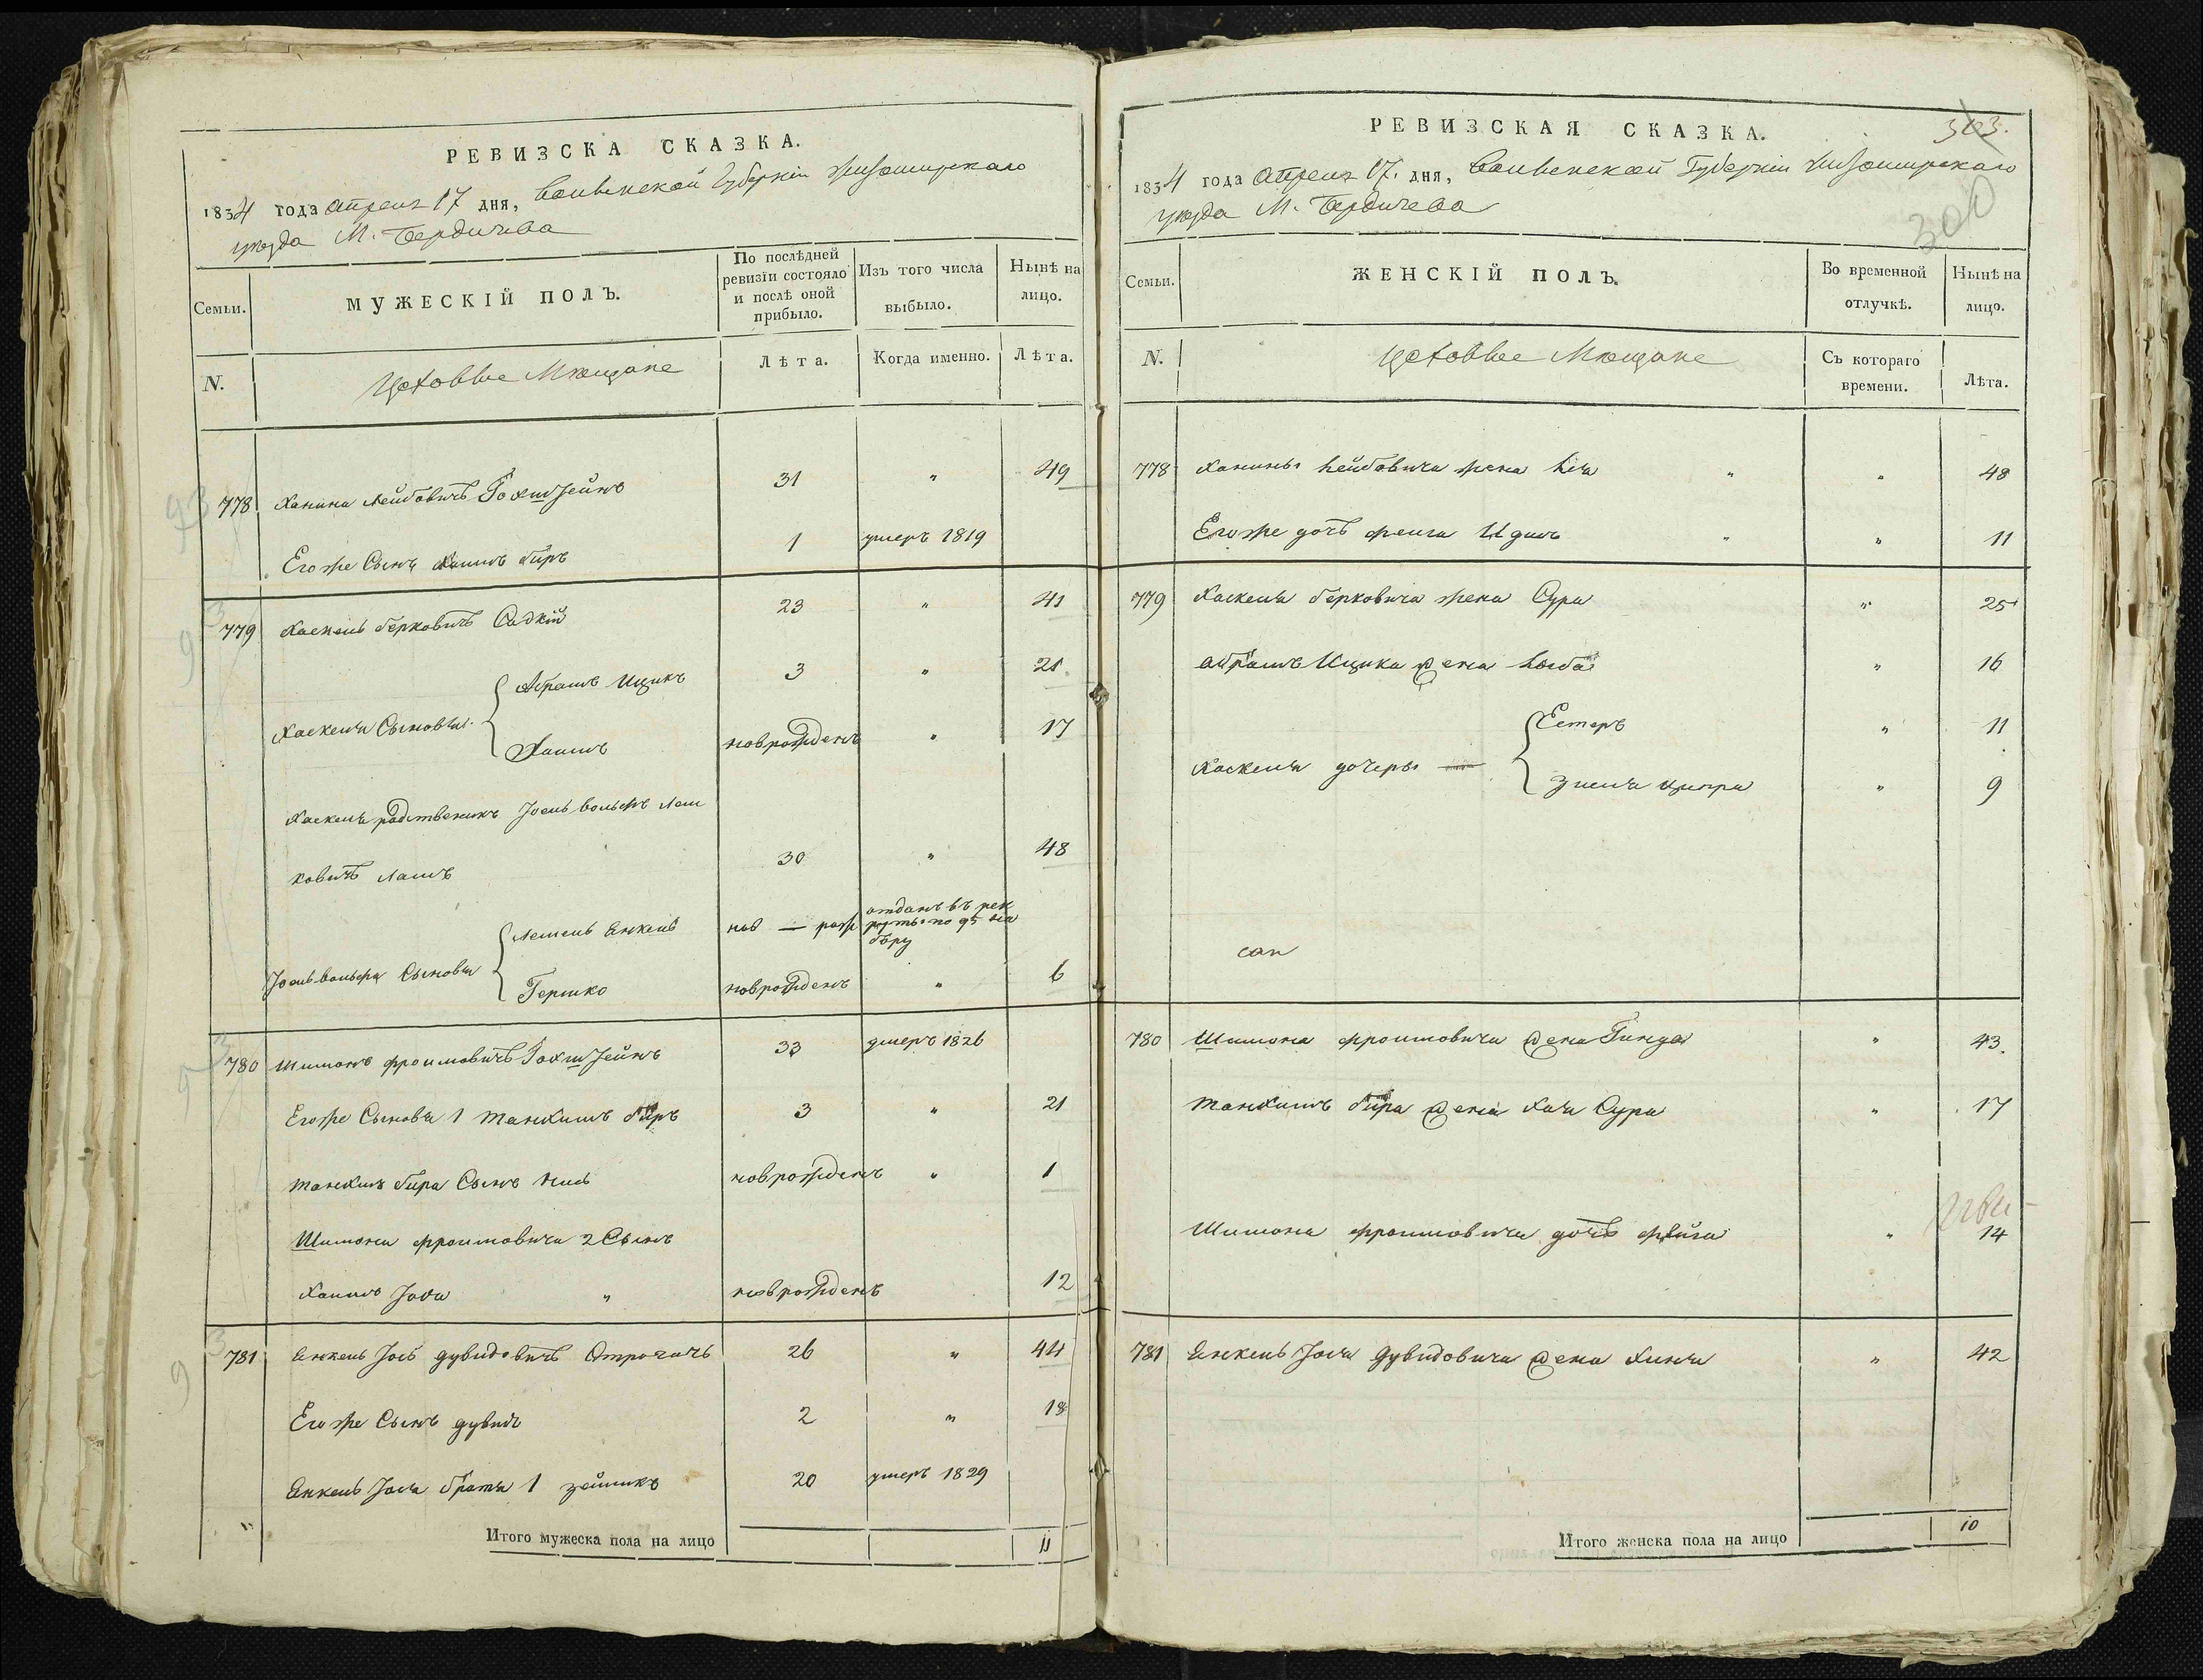 РЕВИЗСКА СКАЗКА.
1834 года Апреля 17 дня, Волынской Губернии Житомирскаго
уезда М. Бердичева
Семьи.
МУЖЕСКІЙ ПОЛЪ.
По послѣдней ревизіи состояло и послѣ оной прибыло.
Изъ того числа выбыло.
Нынѣ на лицо.
N.
Цеховые Мещане
Лѣта.
Когда именно.
Лѣта.
778 Ханина Лейбовичъ Гохштейнъ 31 " 49
Егоже Сынъ Хаимъ беръ 1 умеръ 1819
779 Хаскель берковичъ Садкій 23 " 41
Абрамъ Ицикъ 3 " 21
Хаскеля Сыновья
Хаимъ новрожденъ " 17
Хаскеля родственикъ Іосль вольфъ
ковичъ 30 " 48
Янкель нов — рож отданъ въ рек руты по 95 набору
Іосль вольфа Сыновья
Гершко новрожденъ " 6
780 Шимонъ фроимовичъ Гохштейнъ 33 умеръ 1826
Егоже Сыновья 1 Танхимъ беръ 3 " 21
Танхим бера Сынъ новрожденъ " 1
Шимона фроимовича 2 Сынъ
Хаимъ " новрожденъ 12
781 Янкель Іось дувидовичъ 26 " 44
Егоже Сынъ дувидъ 2 " 18
Янкель Іося братья 1 зейликъ 20 умеръ 1829
Итого мужеска пола на лицо 11
РЕВИЗСКАЯ СКАЗКА.
1834 года Апреля 17. дня, Волынской Губернии Житомирскаго
уезда М. Бердичева
300
Семьи.
ЖЕНСКІЙ ПОЛЪ.
Во временной отлучкѣ.
Нынѣ на лицо.
N.
Цеховые Мещане
Съ котораго времени.
Лѣта.
778 Ханины Лейбовича жена " " 48
Егоже дочь фейга " " 11
779 Хаскеля берковича жена Сура " 25
Абрамъ Ицика жена " 16
Естеръ " 11
Хаскеля дочеры
ципра " 9
780 Шимона фроимовича жена Гинда " 43.
Танхимъ бера жена Хая Сура " 17
Шимона фроимовича дочь фейга " 14
781 Янкель Іося Дувидовича жена " 42
Итого женска пола на лицо 10